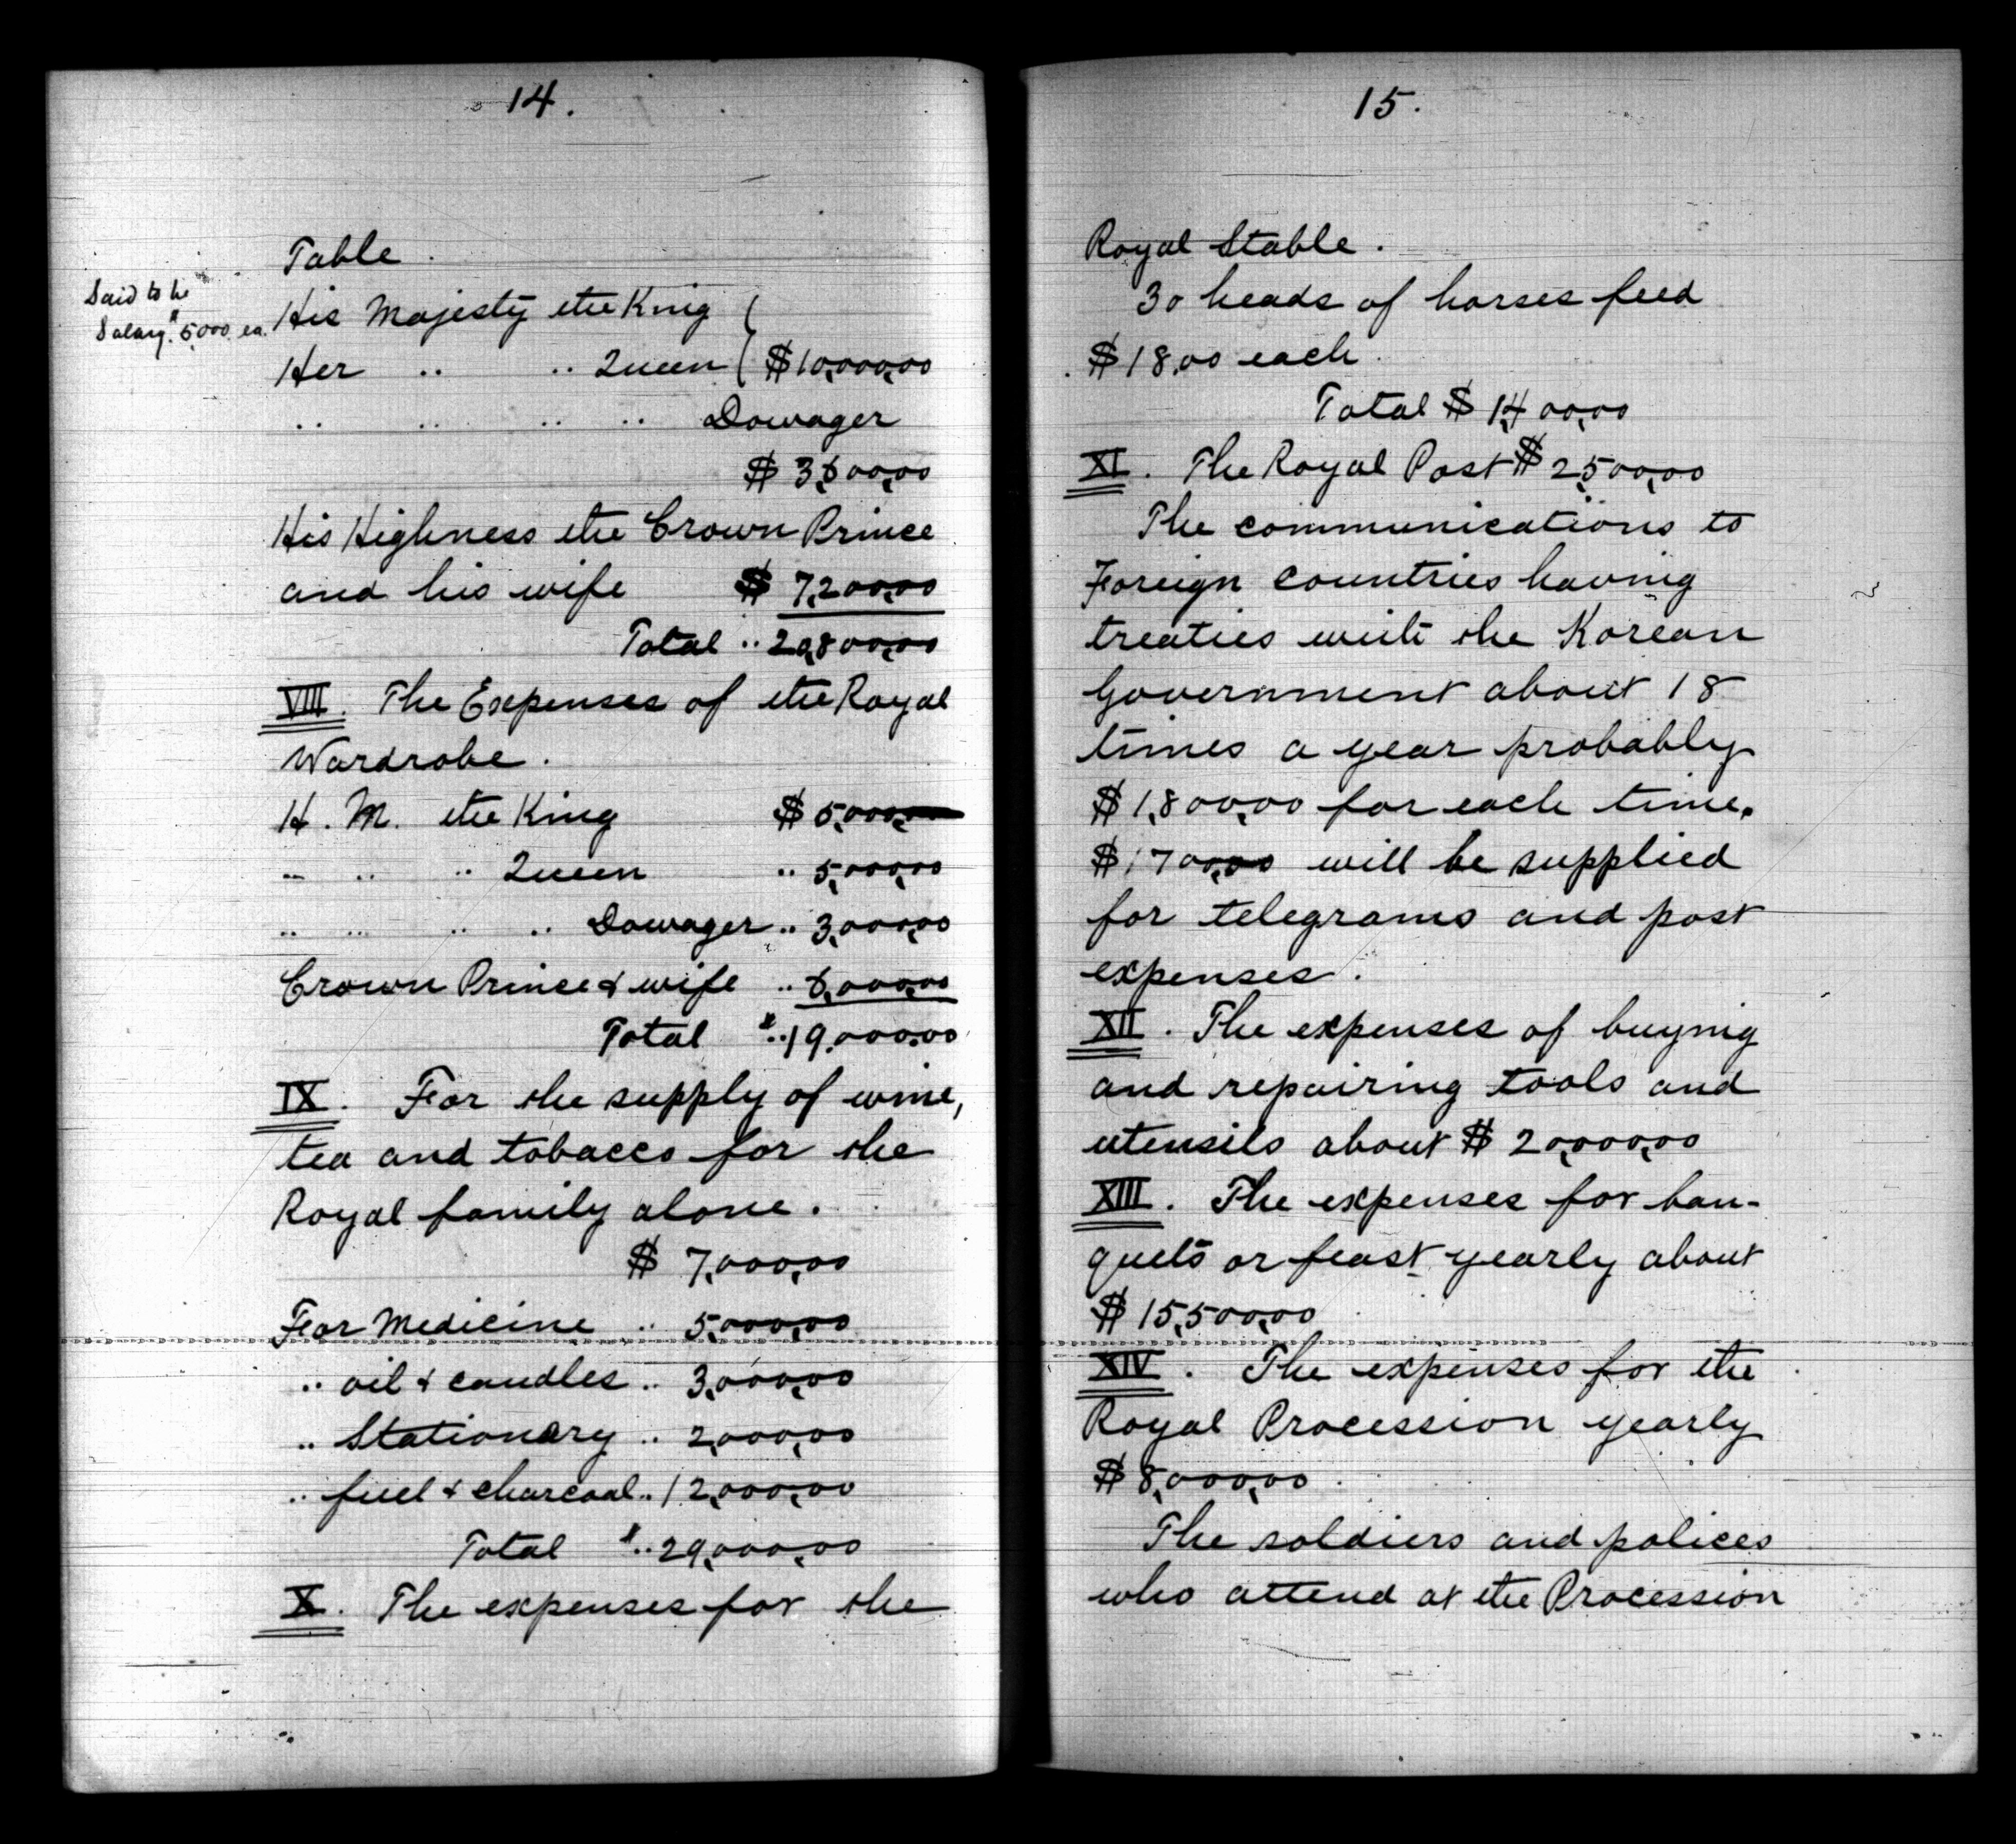 14.
Table.
Said to be
Salary $5,000 ea.
His Majesty the King
Her " " Queen $10,000,00
" " " " Dowager
$3,600,00
His Highness the Crown Prince
and his wife $7,200,00
Total " 20,800,00
VIII. The Expenses of the Royal
Wardrobe.
H. M. the King $5,000,00
" " " Queen " 5,000,00
" " " " Dowager " 3,000,00
Crown Prince & wife " 6,000,00
Total $ " 19,000.00
IX. For the supply of wine,
tea and tobacco for the
Royal family alone.
$7,000,00
For Medicine " 5,000,00
" oil & candles " 3,000,00
" Stationary " 2,000,00
" fuel & charcoal " 12,000,00
Total $ " 29,000,00
X. The expenses for the
15.
Royal Stable.
30 heads of horses feed
$18,00 each.
Total $1,400,00
XI. The Royal Post $2,500,00
The communications to
Foreign countries having
treaties with the Korean
Government about 18
times a year probably
$1,800,00 for each time.
$1700,00 will be supplied
for telegrams and post
expenses.
XII. The expenses of buying
and repairing tools and
utensils about $20,000,00
XIII. The expenses for ban-
quets or feast yearly about
$15,500,00
XIV. The expenses for the
Royal Procession yearly
$8,000,00
The soldiers and polices
who attend at the Procession